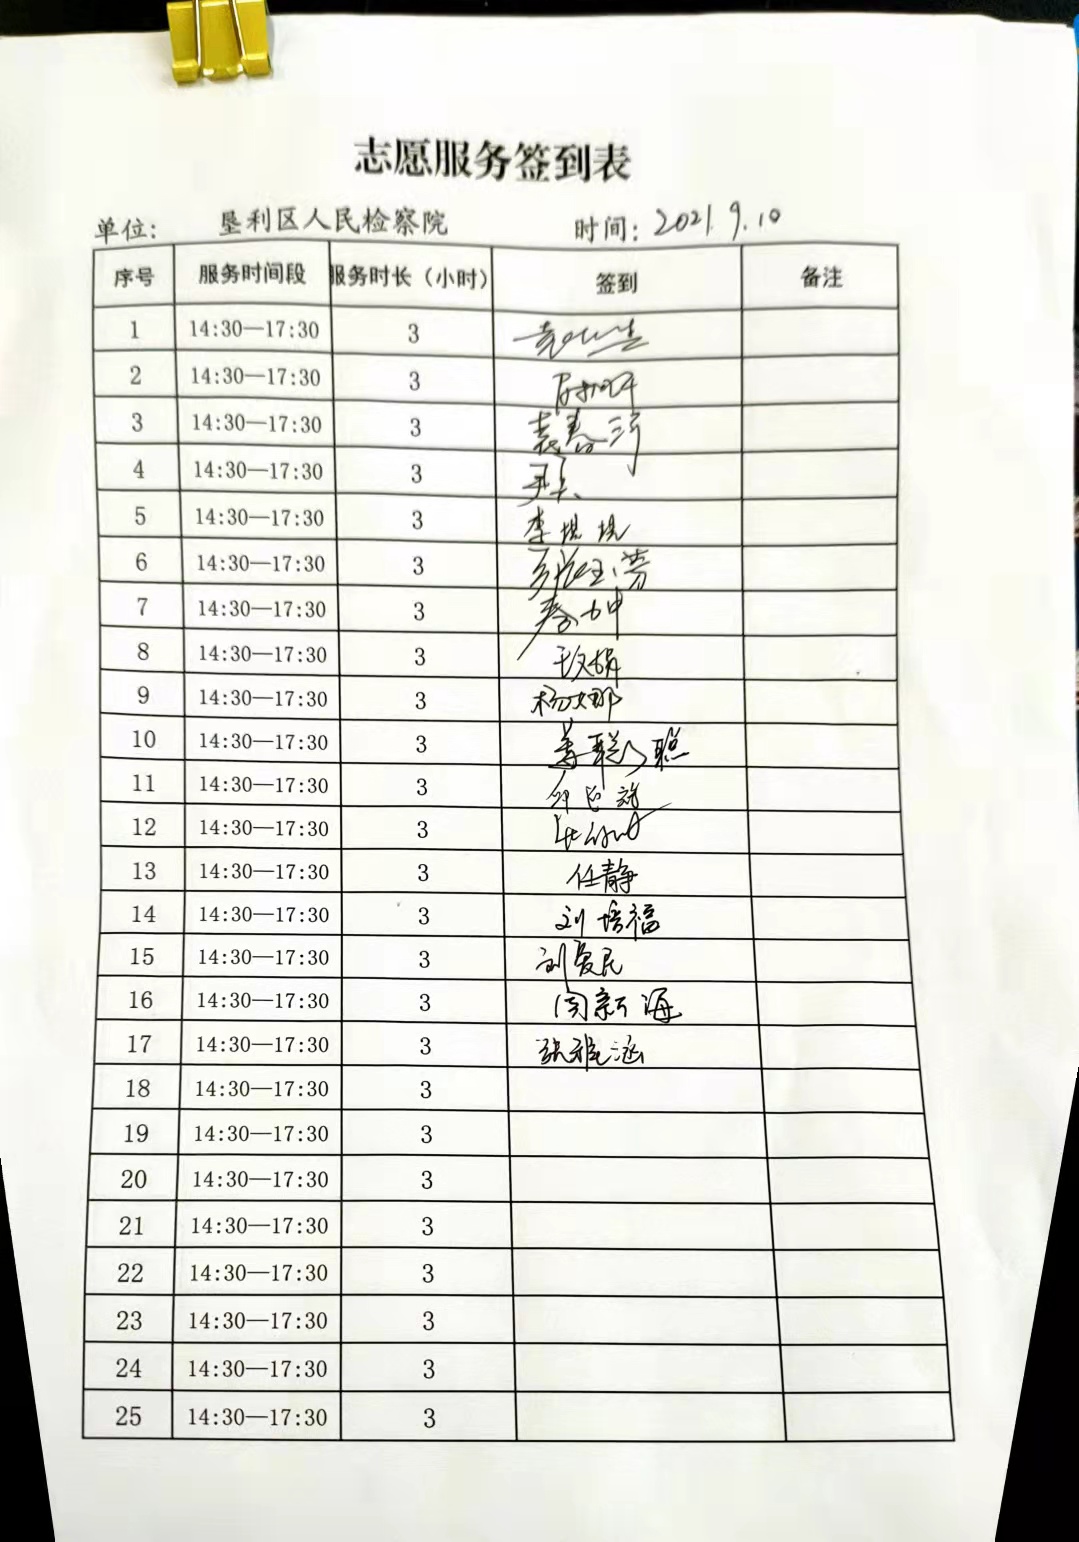 志愿服务签到表
单位: 垦利区人民检察院 时间: 2021.9.10
序号 服务时间段 服务时长（小时） 签到 备注
1 14:30—17:30 3
2 14:30—17:30 3
3 14:30—17:30 3 袁春
4 14:30—17:30 3
5 14:30—17:30 3 李堤堤
6 14:30—17:30 3
7 14:30—17:30 3 秦坤
8 14:30—17:30 3
9 14:30—17:30 3 杨娜
10 14:30—17:30 3 聪聪
11 14:30—17:30 3
12 14:30—17:30 3
13 14:30—17:30 3 任静
14 14:30—17:30 3 刘培福
15 14:30—17:30 3 刘爱民
16 14:30—17:30 3 闫新海
17 14:30—17:30 3 张雅涵
18 14:30—17:30 3
19 14:30—17:30 3
20 14:30—17:30 3
21 14:30—17:30 3
22 14:30—17:30 3
23 14:30—17:30 3
24 14:30—17:30 3
25 14:30—17:30 3